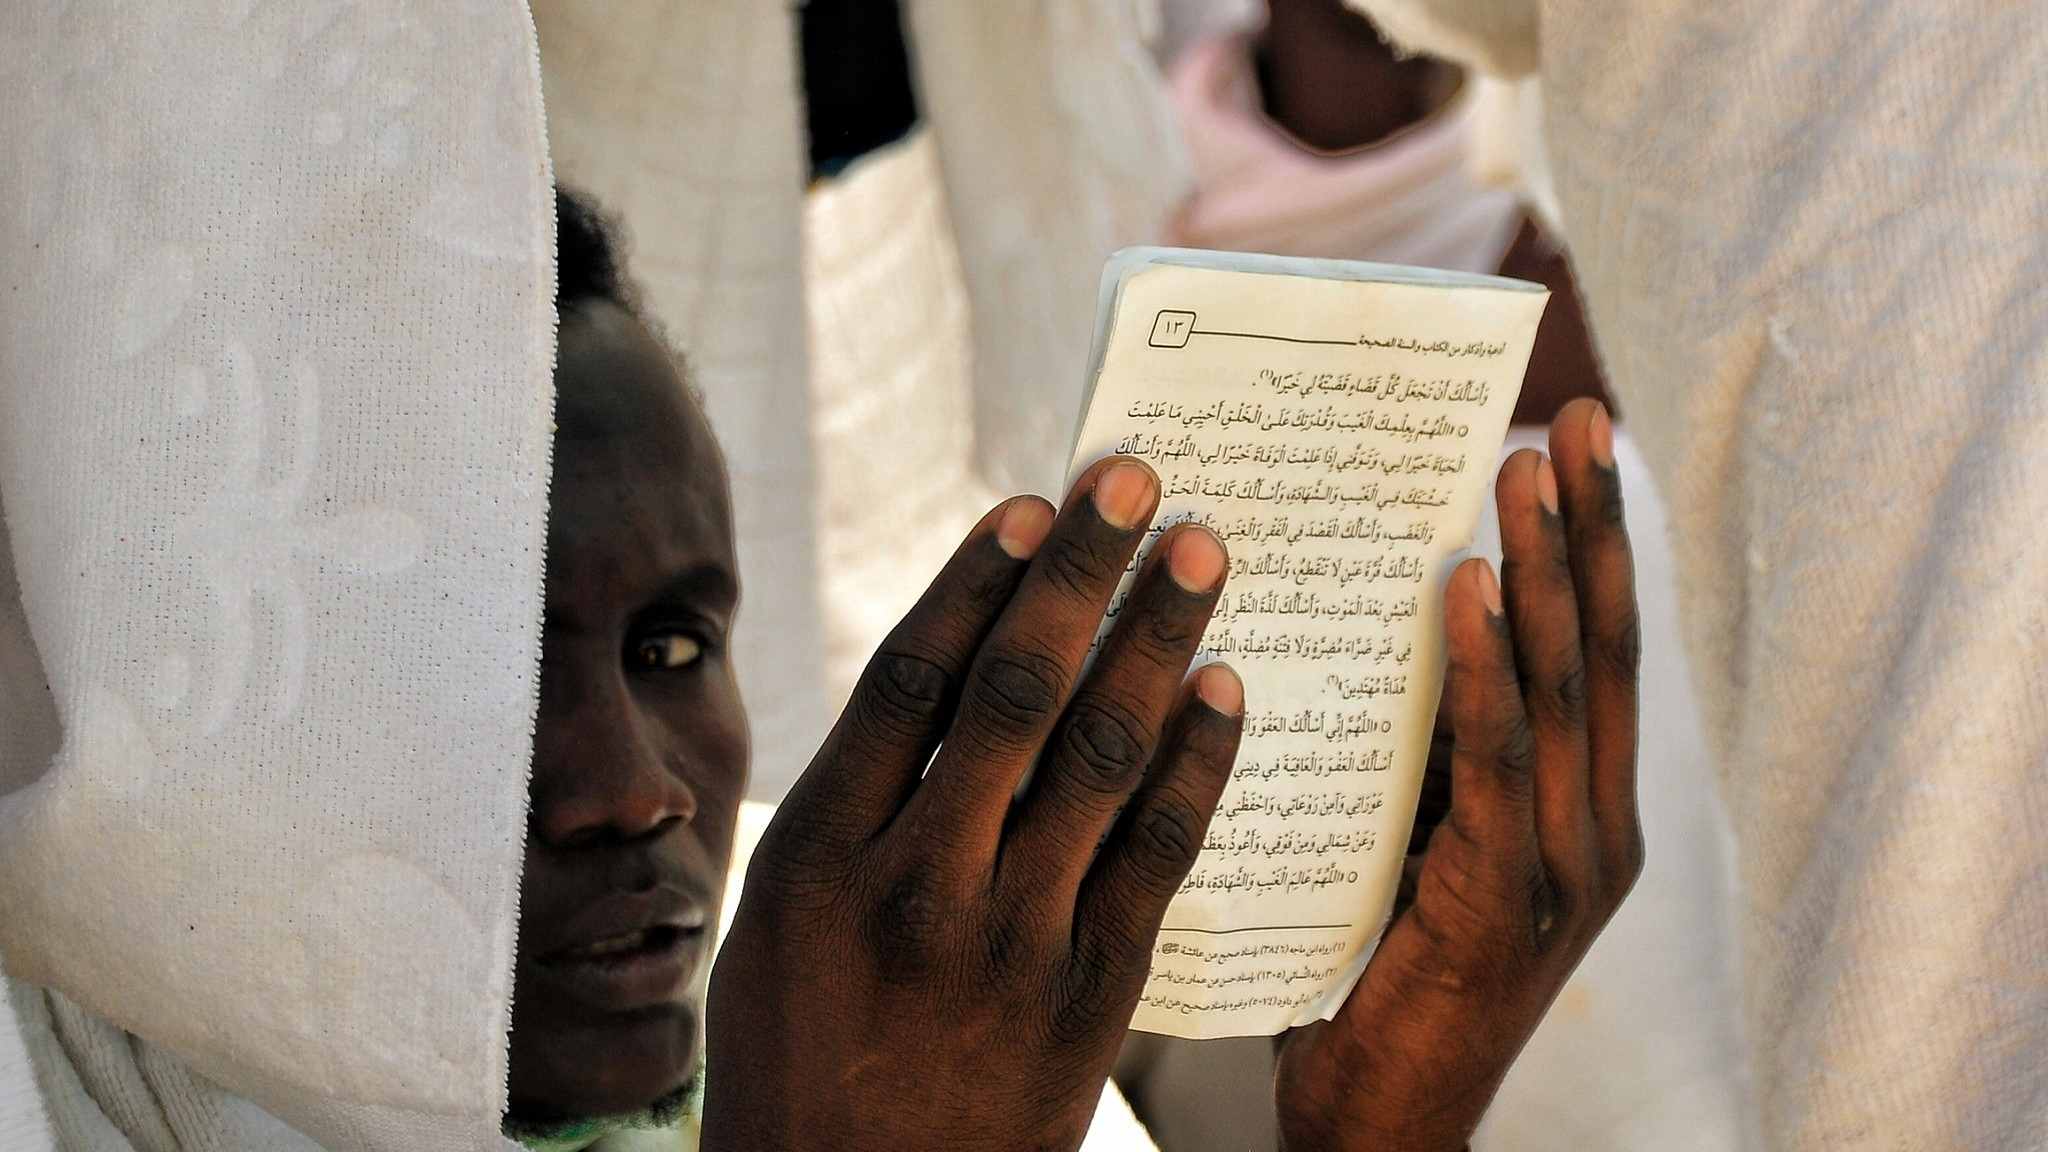 ١٣ أدعية وأذكار من الكتاب والسنة الصحيحة
وَأَسْأَلُكَ أَنْ تَجْعَلَ كُلَّ قَضَاءٍ قَضَيْتَهُ لِي خَيْرًا»(١).
○ «اللَّهُمَّ بِعِلْمِكَ الْغَيْبَ وَقُدْرَتِكَ عَلَىٰ الْخَلْقِ أَحْيِنِي مَا عَلِمْتَ
الْحَيَاةَ خَيْرًا لِي، وَتَوَفَّنِي إِذَا عَلِمْتَ الْوَفَاةَ خَيْرًا لِي، اللَّهُمَّ وَأَسْأَلُكَ
خَشْيَتَكَ فِي الْغَيْبِ وَالشَّهَادَةِ، وَأَسْأَلُكَ كَلِمَةَ الْحَقِّ
وَالْغَضَبِ، وَأَسْأَلُكَ الْقَصْدَ فِي الْفَقْرِ وَالْغِنَىٰ،
وَأَسْأَلُكَ قُرَّةَ عَيْنٍ لَا تَنْقَطِعُ، وَأَسْأَلُكَ
الْعَيْشِ بَعْدَ الْمَوْتِ، وَأَسْأَلُكَ لَذَّةَ النَّظَرِ إِلَى
فِي غَيْرِ ضَرَّاءَ مُضِرَّةٍ وَلَا فِتْنَةٍ مُضِلَّةٍ، اللَّهُمَّ
هُدَاةً مُهْتَدِينَ»(٢).
○ «اللَّهُمَّ إِنِّي أَسْأَلُكَ الْعَفْوَ
أَسْأَلُكَ الْعَفْوَ وَالْعَافِيَةَ فِي دِينِي
عَوْرَاتِي وَآمِنْ رَوْعَاتِي، وَاحْفَظْنِي
وَعَنْ شِمَالِي وَمِنْ فَوْقِي، وَأَعُوذُ
○ «اللَّهُمَّ عَالِمَ الْغَيْبِ وَالشَّهَادَةِ،
(١) رواه ابن ماجه (٣٨٤٦) بإسناد صحيح عن عائشة
(٢) رواه النسائي (١٣٠٥) بإسناد حسن عن عمار بن ياسر
أبو داود (٥٠٧٤) وغيره بإسناد صحيح عن ابن